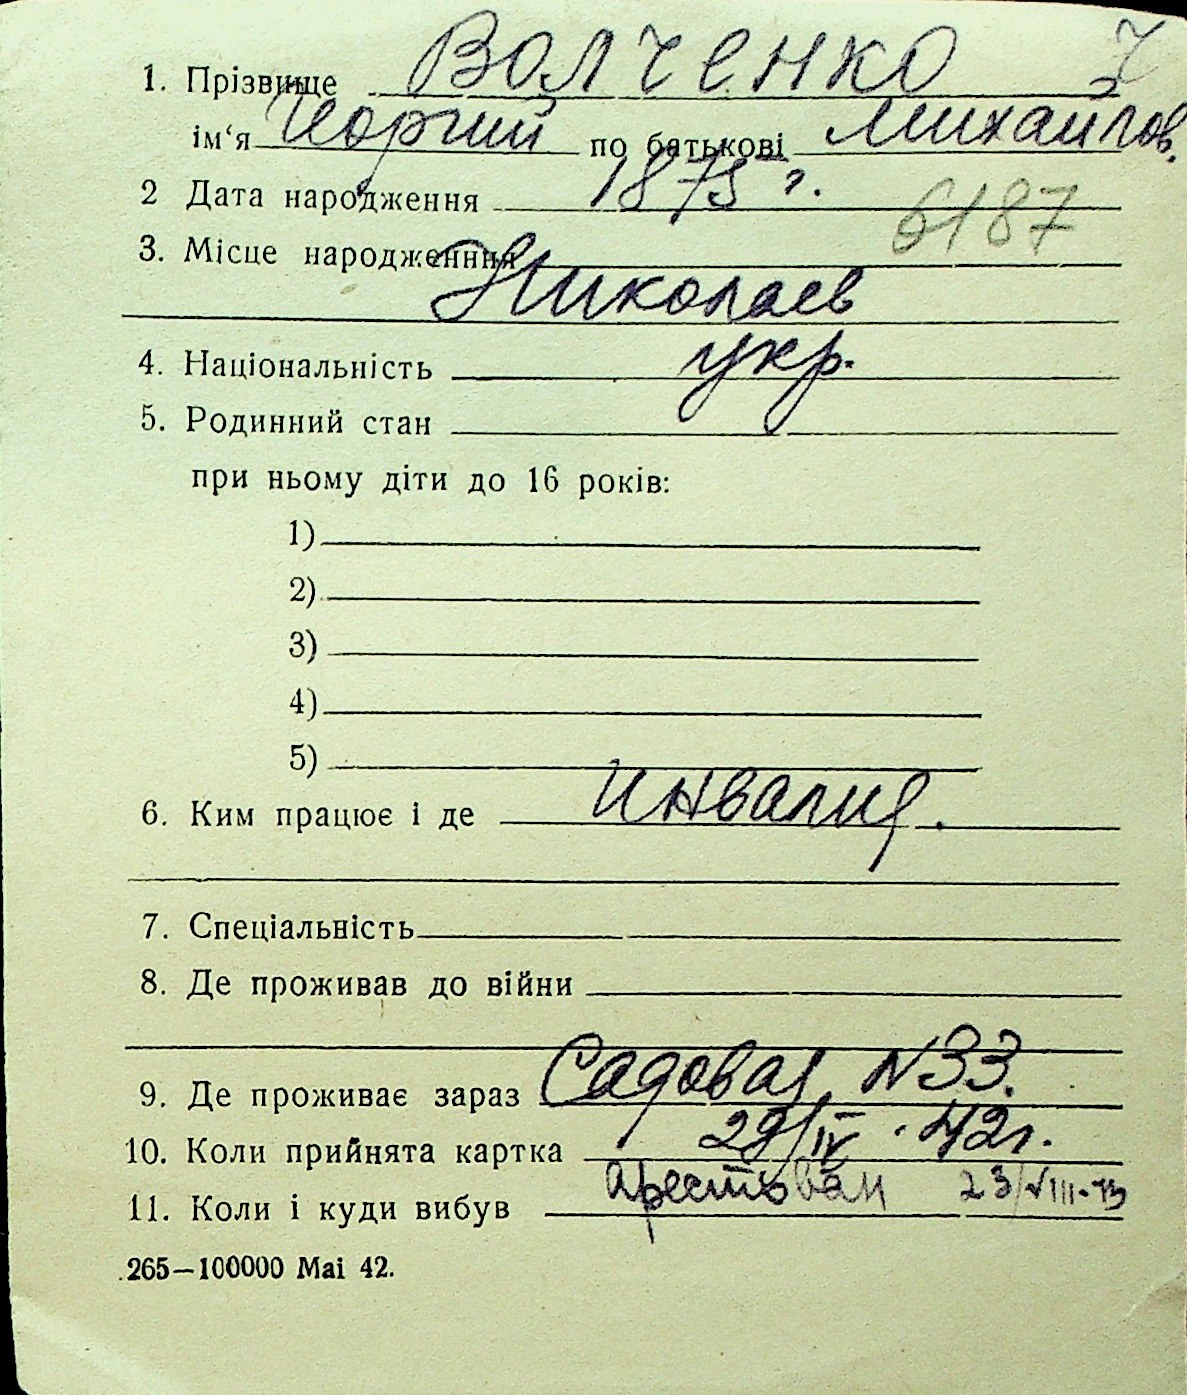 7
1. Прізвище Волченко
ім‘я Георгий по батькові Михайлов.
2 Дата народження 1875 г.
6187
3. Місце народженння
Николаев
4. Національність укр.
5. Родинний стан
при ньому діти до 16 років:
1)
2)
3)
4)
5)
6. Ким працює і де инвалид.
7. Спеціальність
8. Де проживав до війни
9. Де проживає зараз Садовая N33.
10. Коли прийнята картка 29/IV . 42г.
11. Коли і куди вибув арестован 23/VIII-43
265—100000 Mai 42.